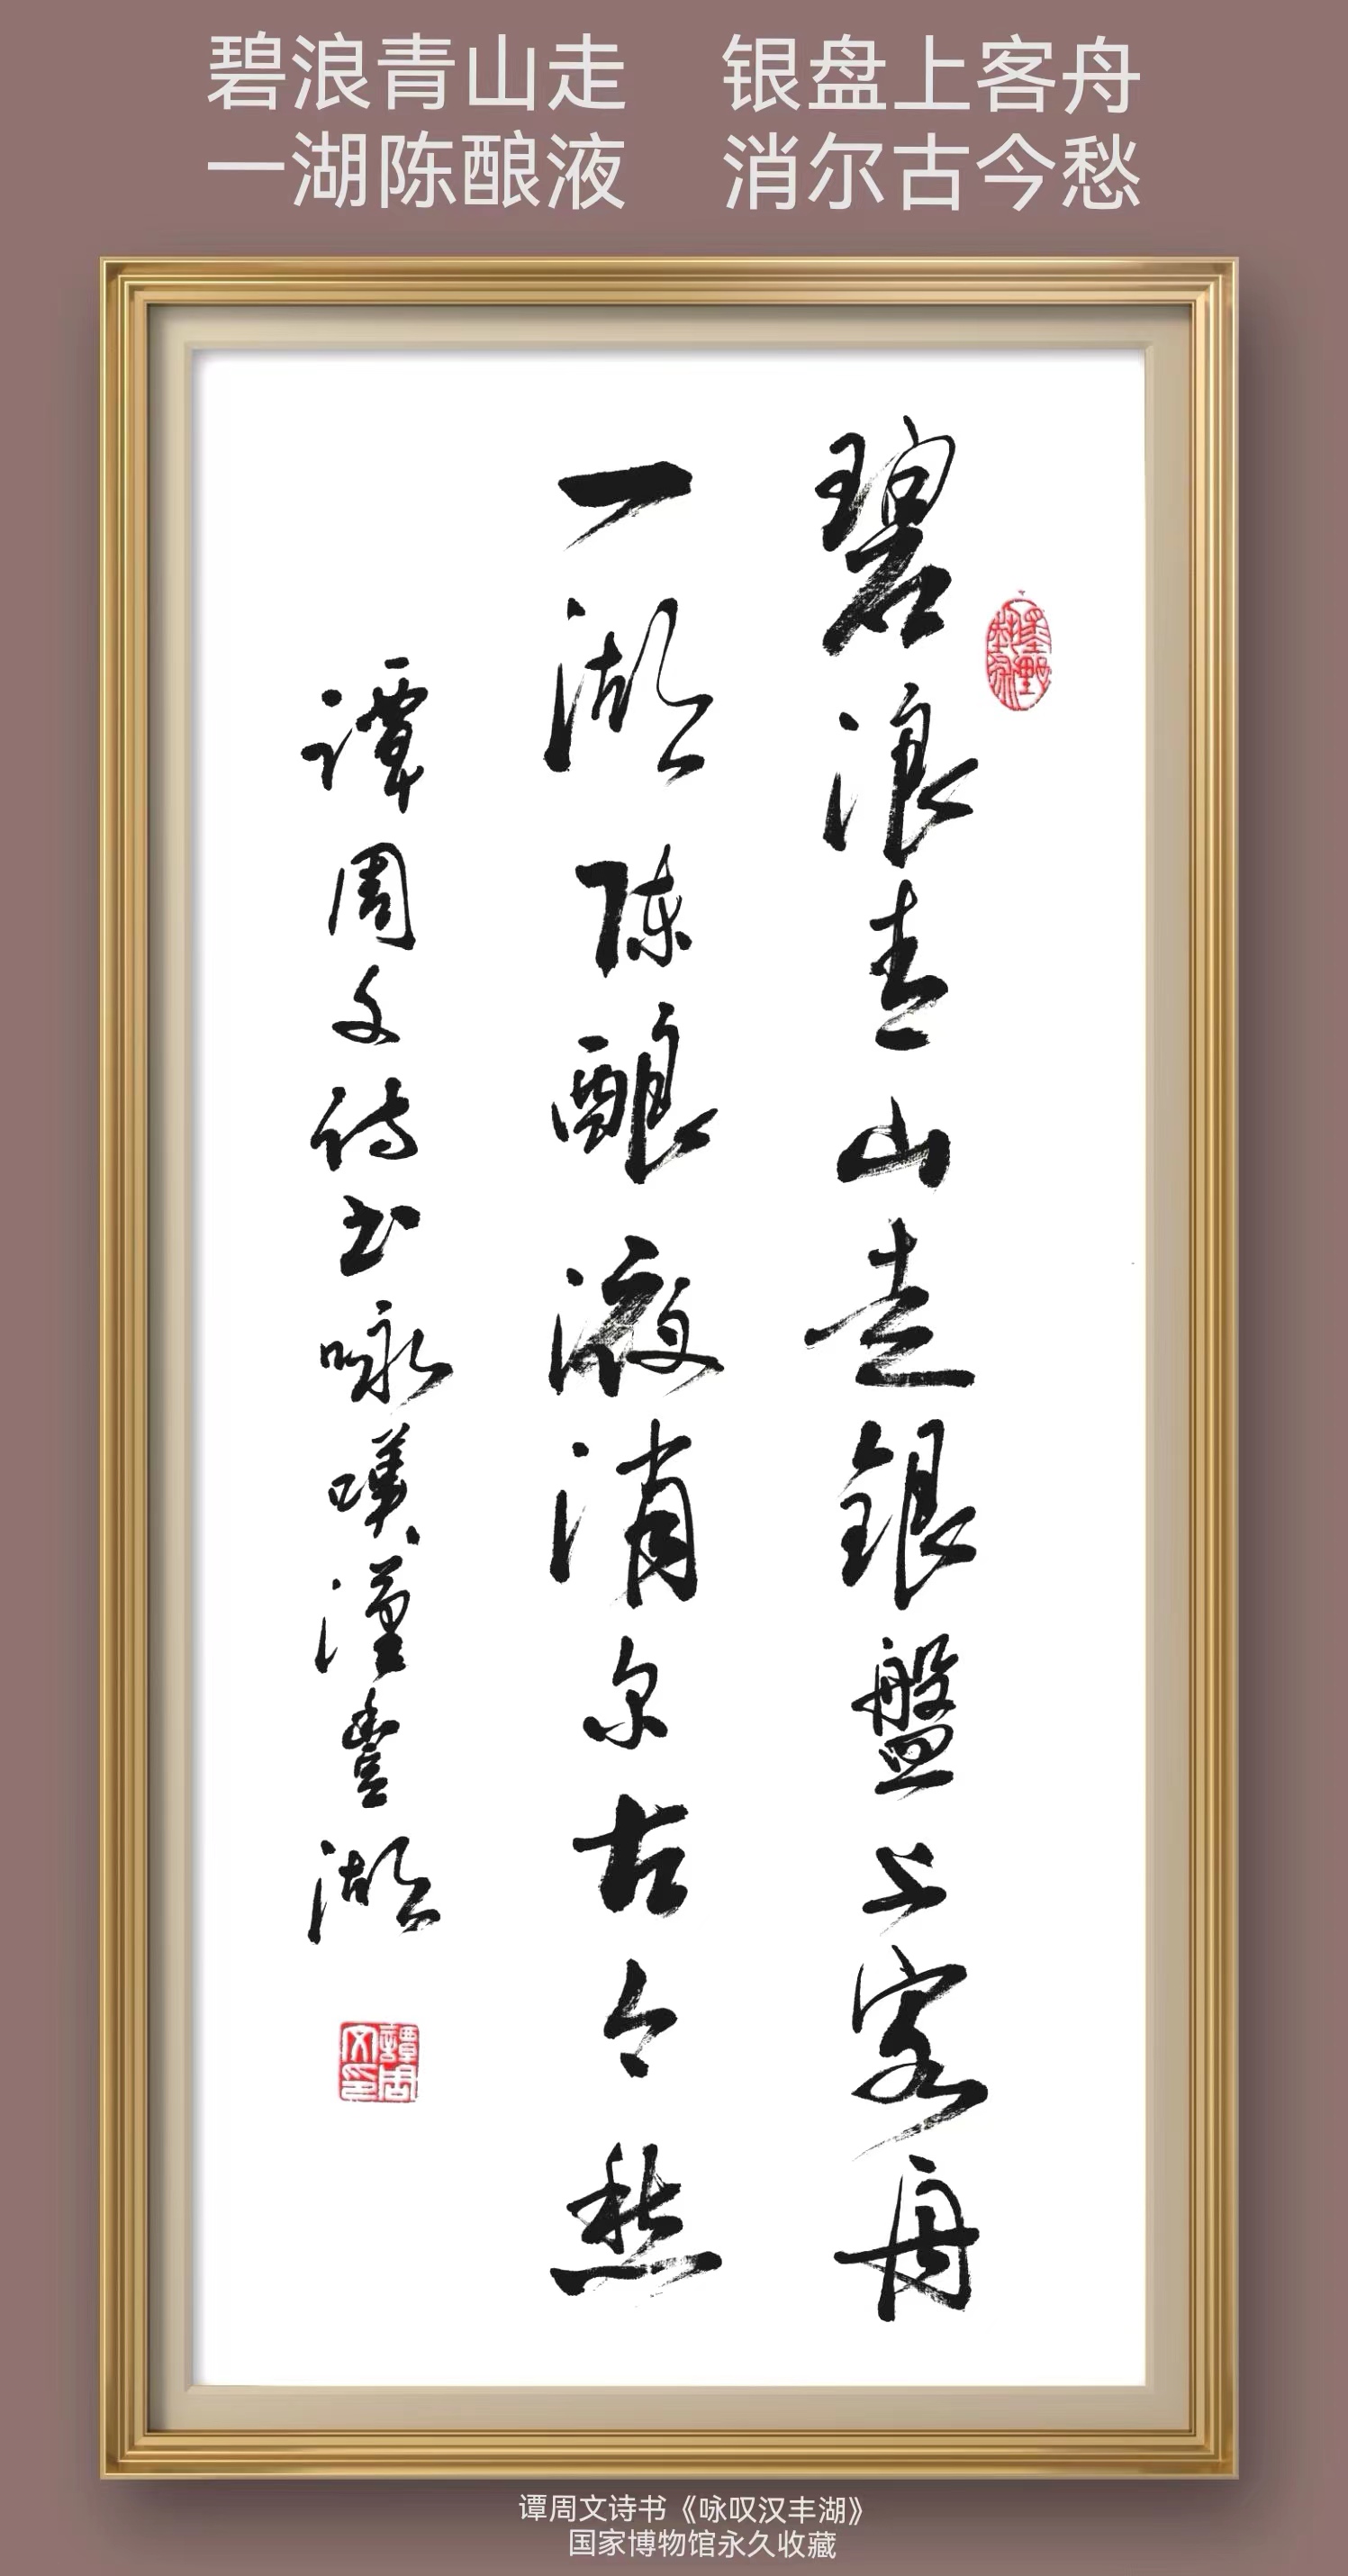 碧浪青山走 银盘上客舟
一湖陈酿液 消尔古今愁
碧浪青山走银盤上客舟
一湖陈酿液消尔古今愁
谭周文诗书咏嘆漢豊湖
譚周文印
谭周文诗书《咏叹汉丰湖》
国家博物馆永久收藏